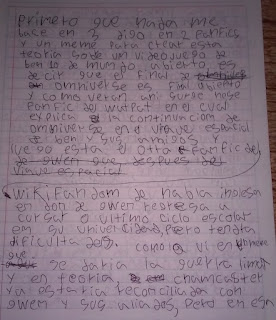 primero que nada me
base en 3 digo en 2 fanfics
y un meme para crear esta
teoria sobre un videojuego de
ben 10 de mundo abierto, es
decir que el final de
omniverse es final abierto
y como veran ahi surge
fanfic del wutpat en el cual
explica la continuacion de
omniverse en el viaje espacial
de ben y sus amigos y
luego esta el otro fanfic del
de gwen que despues del
viaje espacial
wiki fandom de habla inglesa
en donde gwen regresa a
cursar o ultimo ciclo escolar
en su universidad, pero tendra
dificultades. como la vi en
que
se daria la guerra
y en teoria, chamcaster
ya estaria reconciliada con
gwen y sus aliados, pero en esa